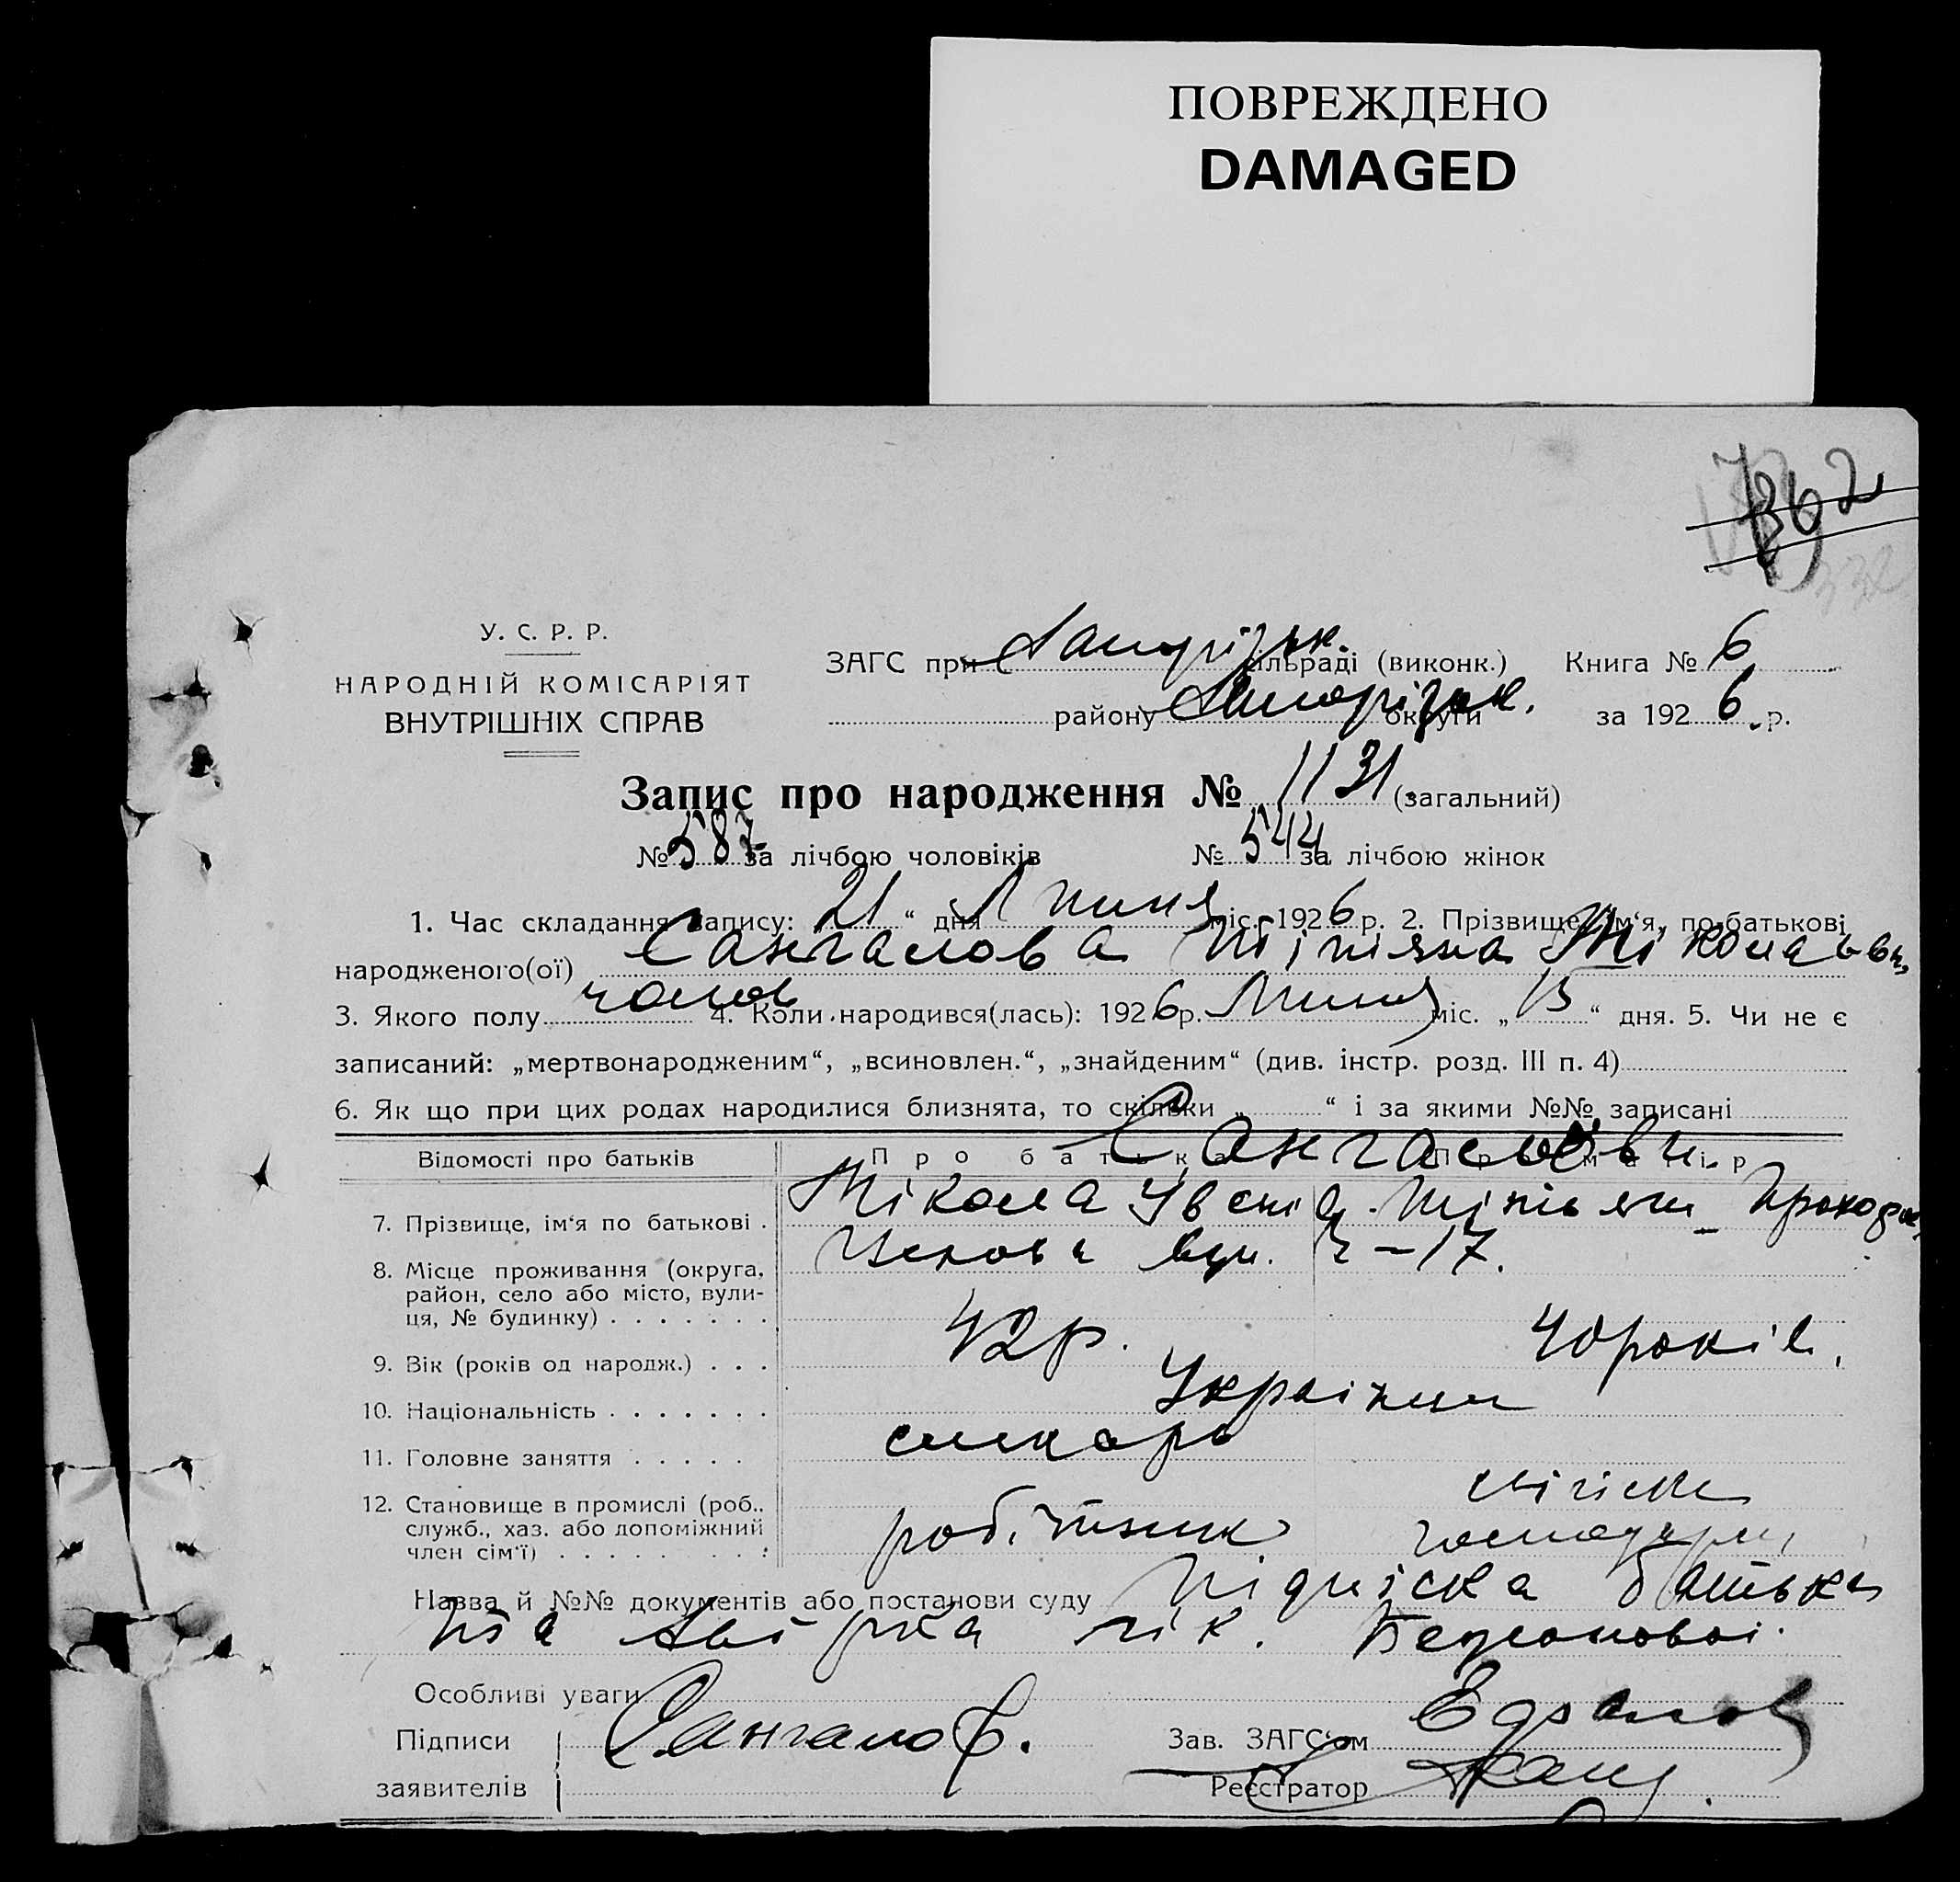 ПОВРЕЖДЕНО
DAMAGED
362
У. С. Р. Р.
НАРОДНІЙ КОМІСАРІЯТ
ВНУТРІШНІХ СПРАВ
ЗАГС при Запорізьк. сільраді (виконк.) Книга № 6
району Запорізьк. округи за 1926 р.
Запис про народження № 1131 (загальний)
№ 587 за лічбою чоловіків № 544 за лічбою жінок
1. Час складання запису: 21 “ дня Липня міс. 1926 р. 2. Прізвище, ім‘я, по-батькові
народженого(ої) Сангалова
3. Якого полу 4. Коли народився(лась): 1926 р. Липня міс. „15“ дня. 5. Чи не є
записаний: „мертвонародженим“, „всиновлен.“, „знайденим“ (див. інстр. розд. III п. 4)
6. Як що при цих родах народилися близнята, то скільки „ “ і за якими №№ записані
Відомості про батьків Про батька Про матір
Сангалови
7. Прізвище, ім‘я по батькові . Мікола
8. Місце проживання (округа, район, село або місто, вулиця, № будинку) . . . . . . . вул. 17.
9. Вік (років од народж.) . . . 42 р. 40 років.
10. Національність . . . . . . . Українци
11. Головне заняття . . . . . слюсарь
12. Становище в промислі (роб., служб., хаз. або допоміжний член сім‘ї) . . . . . . . . . робітник
Назва й №№ документів або постанови суду Підписка батька
та лік.
Особливі уваги
Підписи Сангалов. Зав. ЗАГС‘ом
заявителів Реєстратор